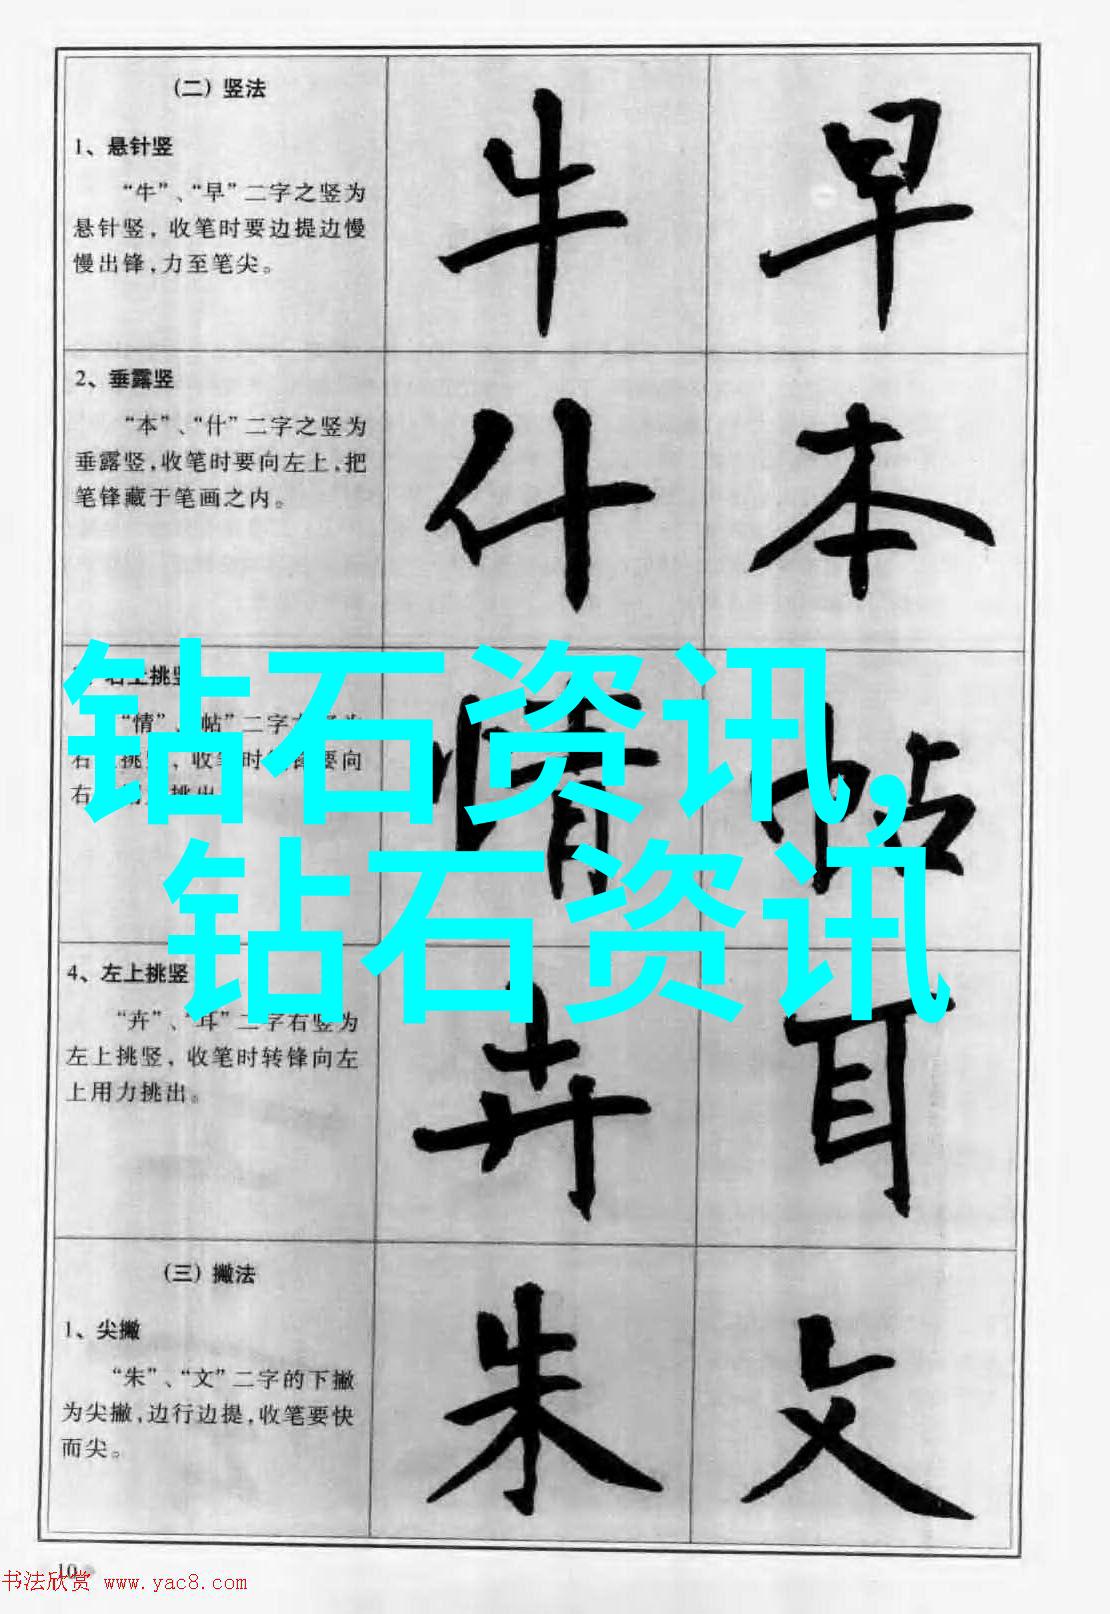 （二）竖法
1、悬针竖
“牛”、“早”二字之竖为
悬针竖，收笔时要边提边慢
慢出锋，力至笔尖。
牛 早
2、垂露竖
“本”、“什”二字之竖为
垂露竖，收笔时要向左上，把
笔锋藏于笔画之内。
什 本
右上挑竖
“情”、“帖”二字
挑竖，收笔时 要向
右 挑出
情 帖
钻石资讯，
钻石资讯
4、左上挑竖
“卉”、“耳”二字右竖为
左上挑竖，收笔时转锋向左
上用力挑出。
卉 耳
（三）撇法
1、尖撇
“朱”、“文”二字的下撇
为尖撇，边行边提，收笔要快
而尖。
朱 文
10
书法欣赏 www.yac8.com